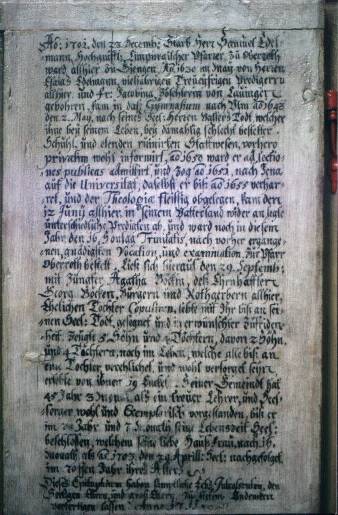 Aō: 1701. den 23. Decemb: Starb Herr Samuel Edel-
mann, Hochgräfl: Limpurgischer Pfarrer zu Oberroth
ward allhier Giengen Aō 1630 im May von Herren
Edelmann, vieljährigen Treueyfrigen Predigern
allhier, und Fr: Jacobina,
gebohren, kam in das Gymnasium nach Ulm Aō
den 2. May, nach seines Seel: Herren Vatters Todt, welcher
ihne bey seinem Leben, bey damahlig schlecht bestelter
Schuhl, und elenden Stattwesen, vorhero
privatim wohl informirt, aō 1650 ward er ad lectio-
nes publicas admittirt, und Zog aō 1651. nach Jena
auf die Universitaet, daselbst er biß aō 1655 verhar-
ret, und der Theologia fleissig obgelegen, kam den
12 Junij allhier, in seinem Vatterland wider an, legte
unterschidliche Predigten ab, und ward noch in diesem
Jahr den 16. Sontag Trinitatis, nach vorher ergange-
nen, gnädigsten Vocation, und examination, zur Pfarr
Oberroth bestelt. Ließ sich hierauf den 29. Septemb:
mit Jungfer Agatha deß Ehrnhafften
Georg Bürgers und Rothgerbern allhier,
Ehelichen Tochter Copuliren, lebte mit Ihr biß an sei-
nen Seel: Todt, gesegnet und in erwünschter Zufriden-
heit, Zeugte 5 Söhn und 4 Töchtern, davon 2 Söhn,
und 4 Töchtern, noch im Leben, welche alle biß an
ein Tochter, verehelichet, und wohl versorget seyn,
erlebte von ihnen 19 Enckel. Seiner Gemeindt hat
45 Jahr 3 Monat, als ein treuer Lehrer, und Seel-
sorger wohl und Exemplarisch vorgestanden, biß er
im Jahr und 7. Monath seine Lebenszeit Seel:
beschlossen, welchem seine liebe Hauß Frau, nach 16.
Monath, als aō 1703. den 29. Aprill: Seel: nachgefolget
im 70sten Jahr ihres Alters.
Dieses Epitaphium haben sämptliche
Seeligen Eltern, und Groß Eltern, zu stetem Andencken
verfertigen lassen. Anno